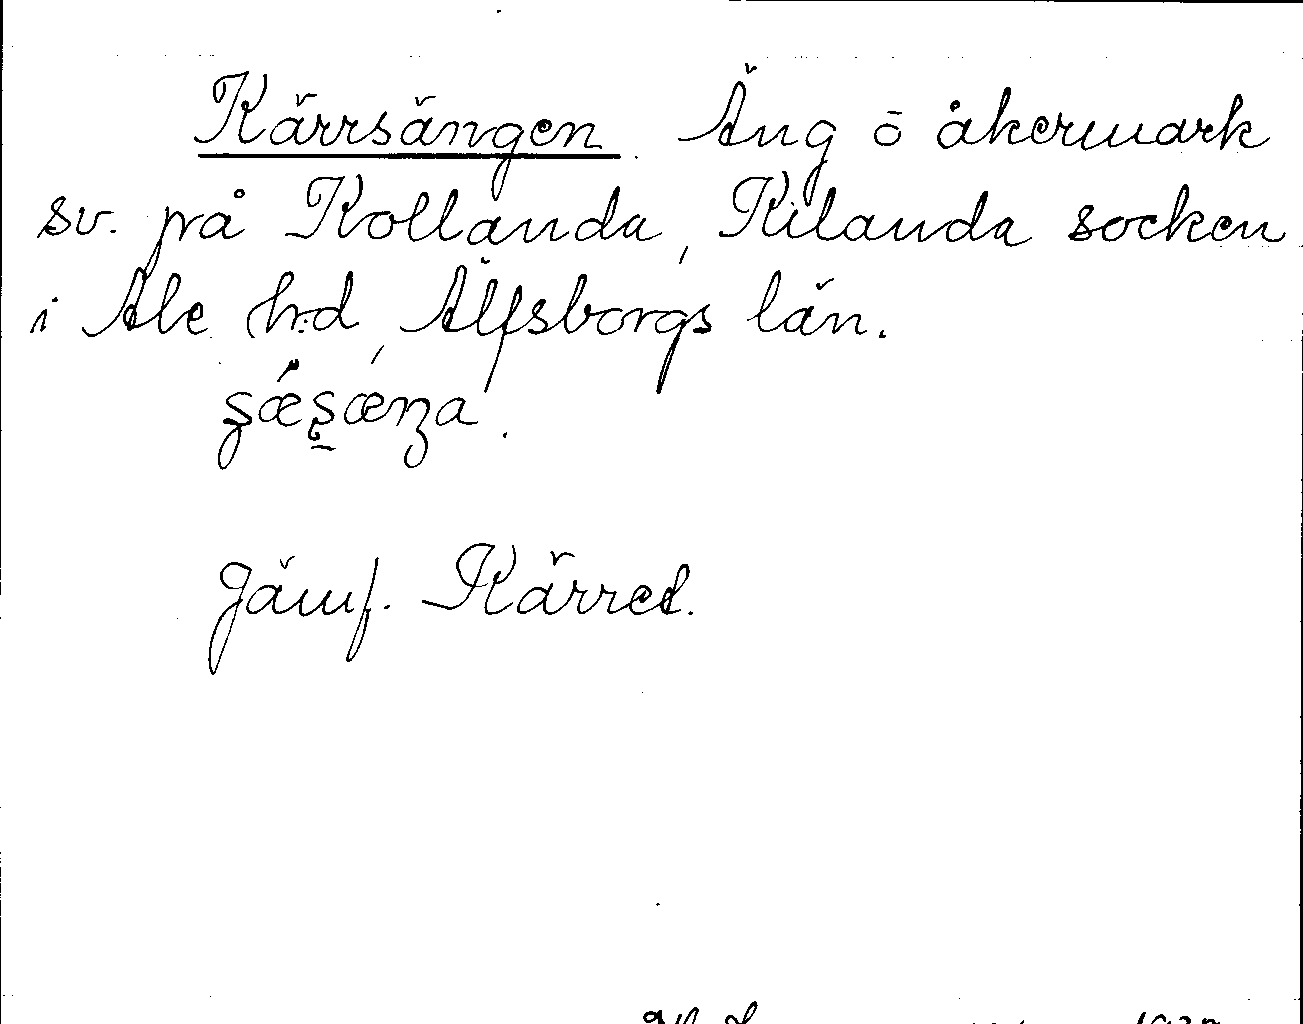 Kärrsängen. Äng o åkermark
sv. på Kollanda, Kilanda socken
i Ale h:d, Älfsborgs län.

Jämf. Kärret.